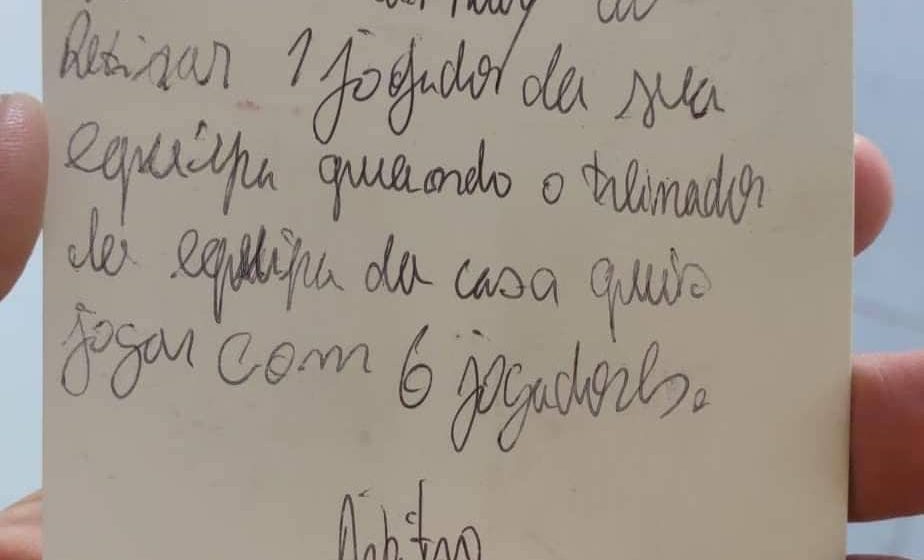 Retirar 1 jogador da sua
equipa quando o treinador
da equipa da casa quis
jogar com 6 jogadores.
Árbitro